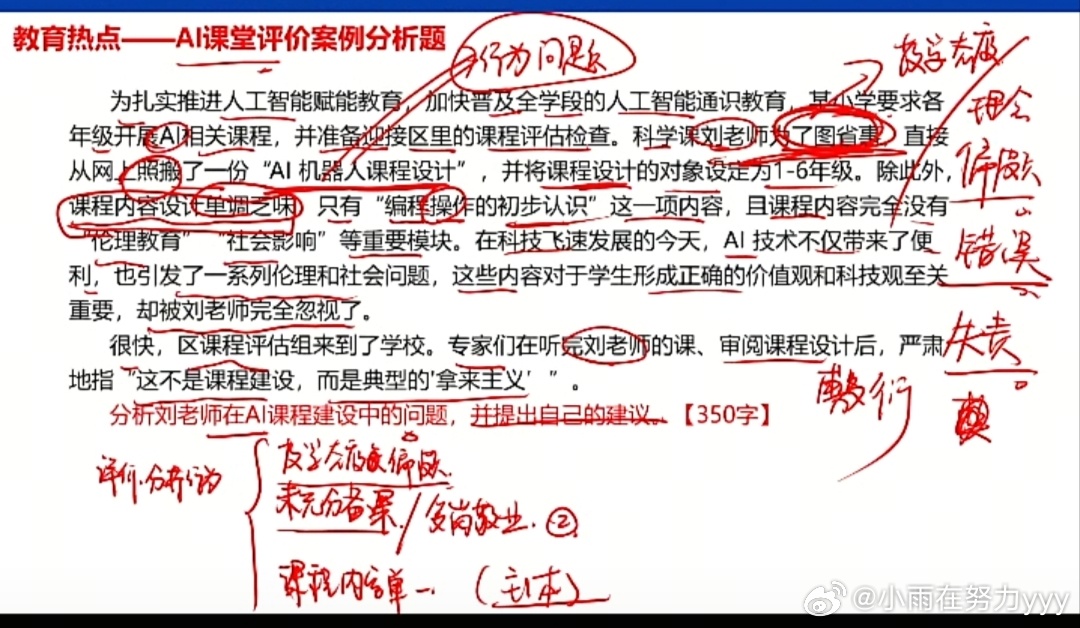 教育热点——AI课堂评价案例分析题
行为问题
教学态度
理念
偏颇
错误
失责
敷衍
为扎实推进人工智能赋能教育，加快普及全学段的人工智能通识教育，某小学要求各
年级开展AI相关课程，并准备迎接区里的课程评估检查。科学课刘老师为了图省事，直接
从网上照搬了一份“AI 机器人课程设计”，并将课程设计的对象设定为1-6年级。除此外，
课程内容设计单调乏味，只有“编程操作的初步认识”这一项内容，且课程内容完全没有
“伦理教育”“社会影响”等重要模块。在科技飞速发展的今天，AI 技术不仅带来了便
利，也引发了一系列伦理和社会问题，这些内容对于学生形成正确的价值观和科技观至关
重要，却被刘老师完全忽视了。
很快，区课程评估组来到了学校。专家们在听完刘老师的课、审阅课程设计后，严肃
地指“这不是课程建设，而是典型的'拿来主义’”。
分析刘老师在AI课程建设中的问题，并提出自己的建议。【350字】
评价.分析行为
教学态度偏颇
未充分备课/爱岗敬业.②
课程内容单一.（生本）
@小雨在努力yyy